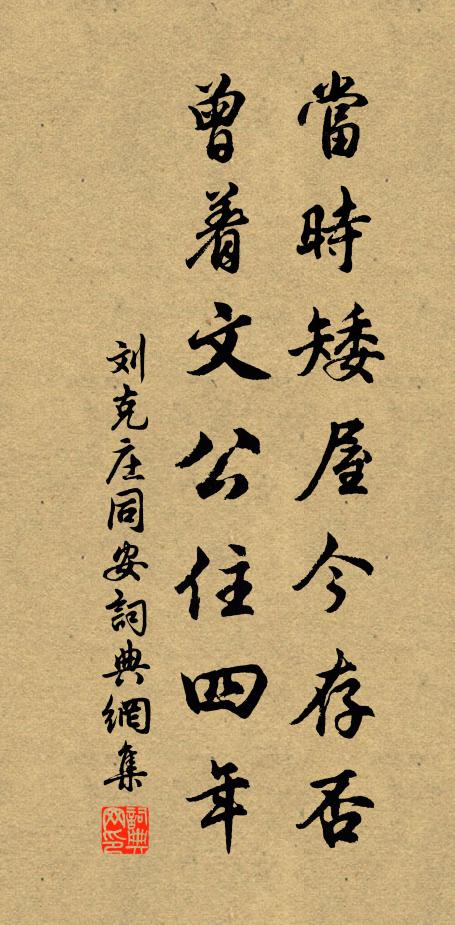 當時矮屋今存否
曾着文公住四年
刘克庄同安詞典網集
詞典网印